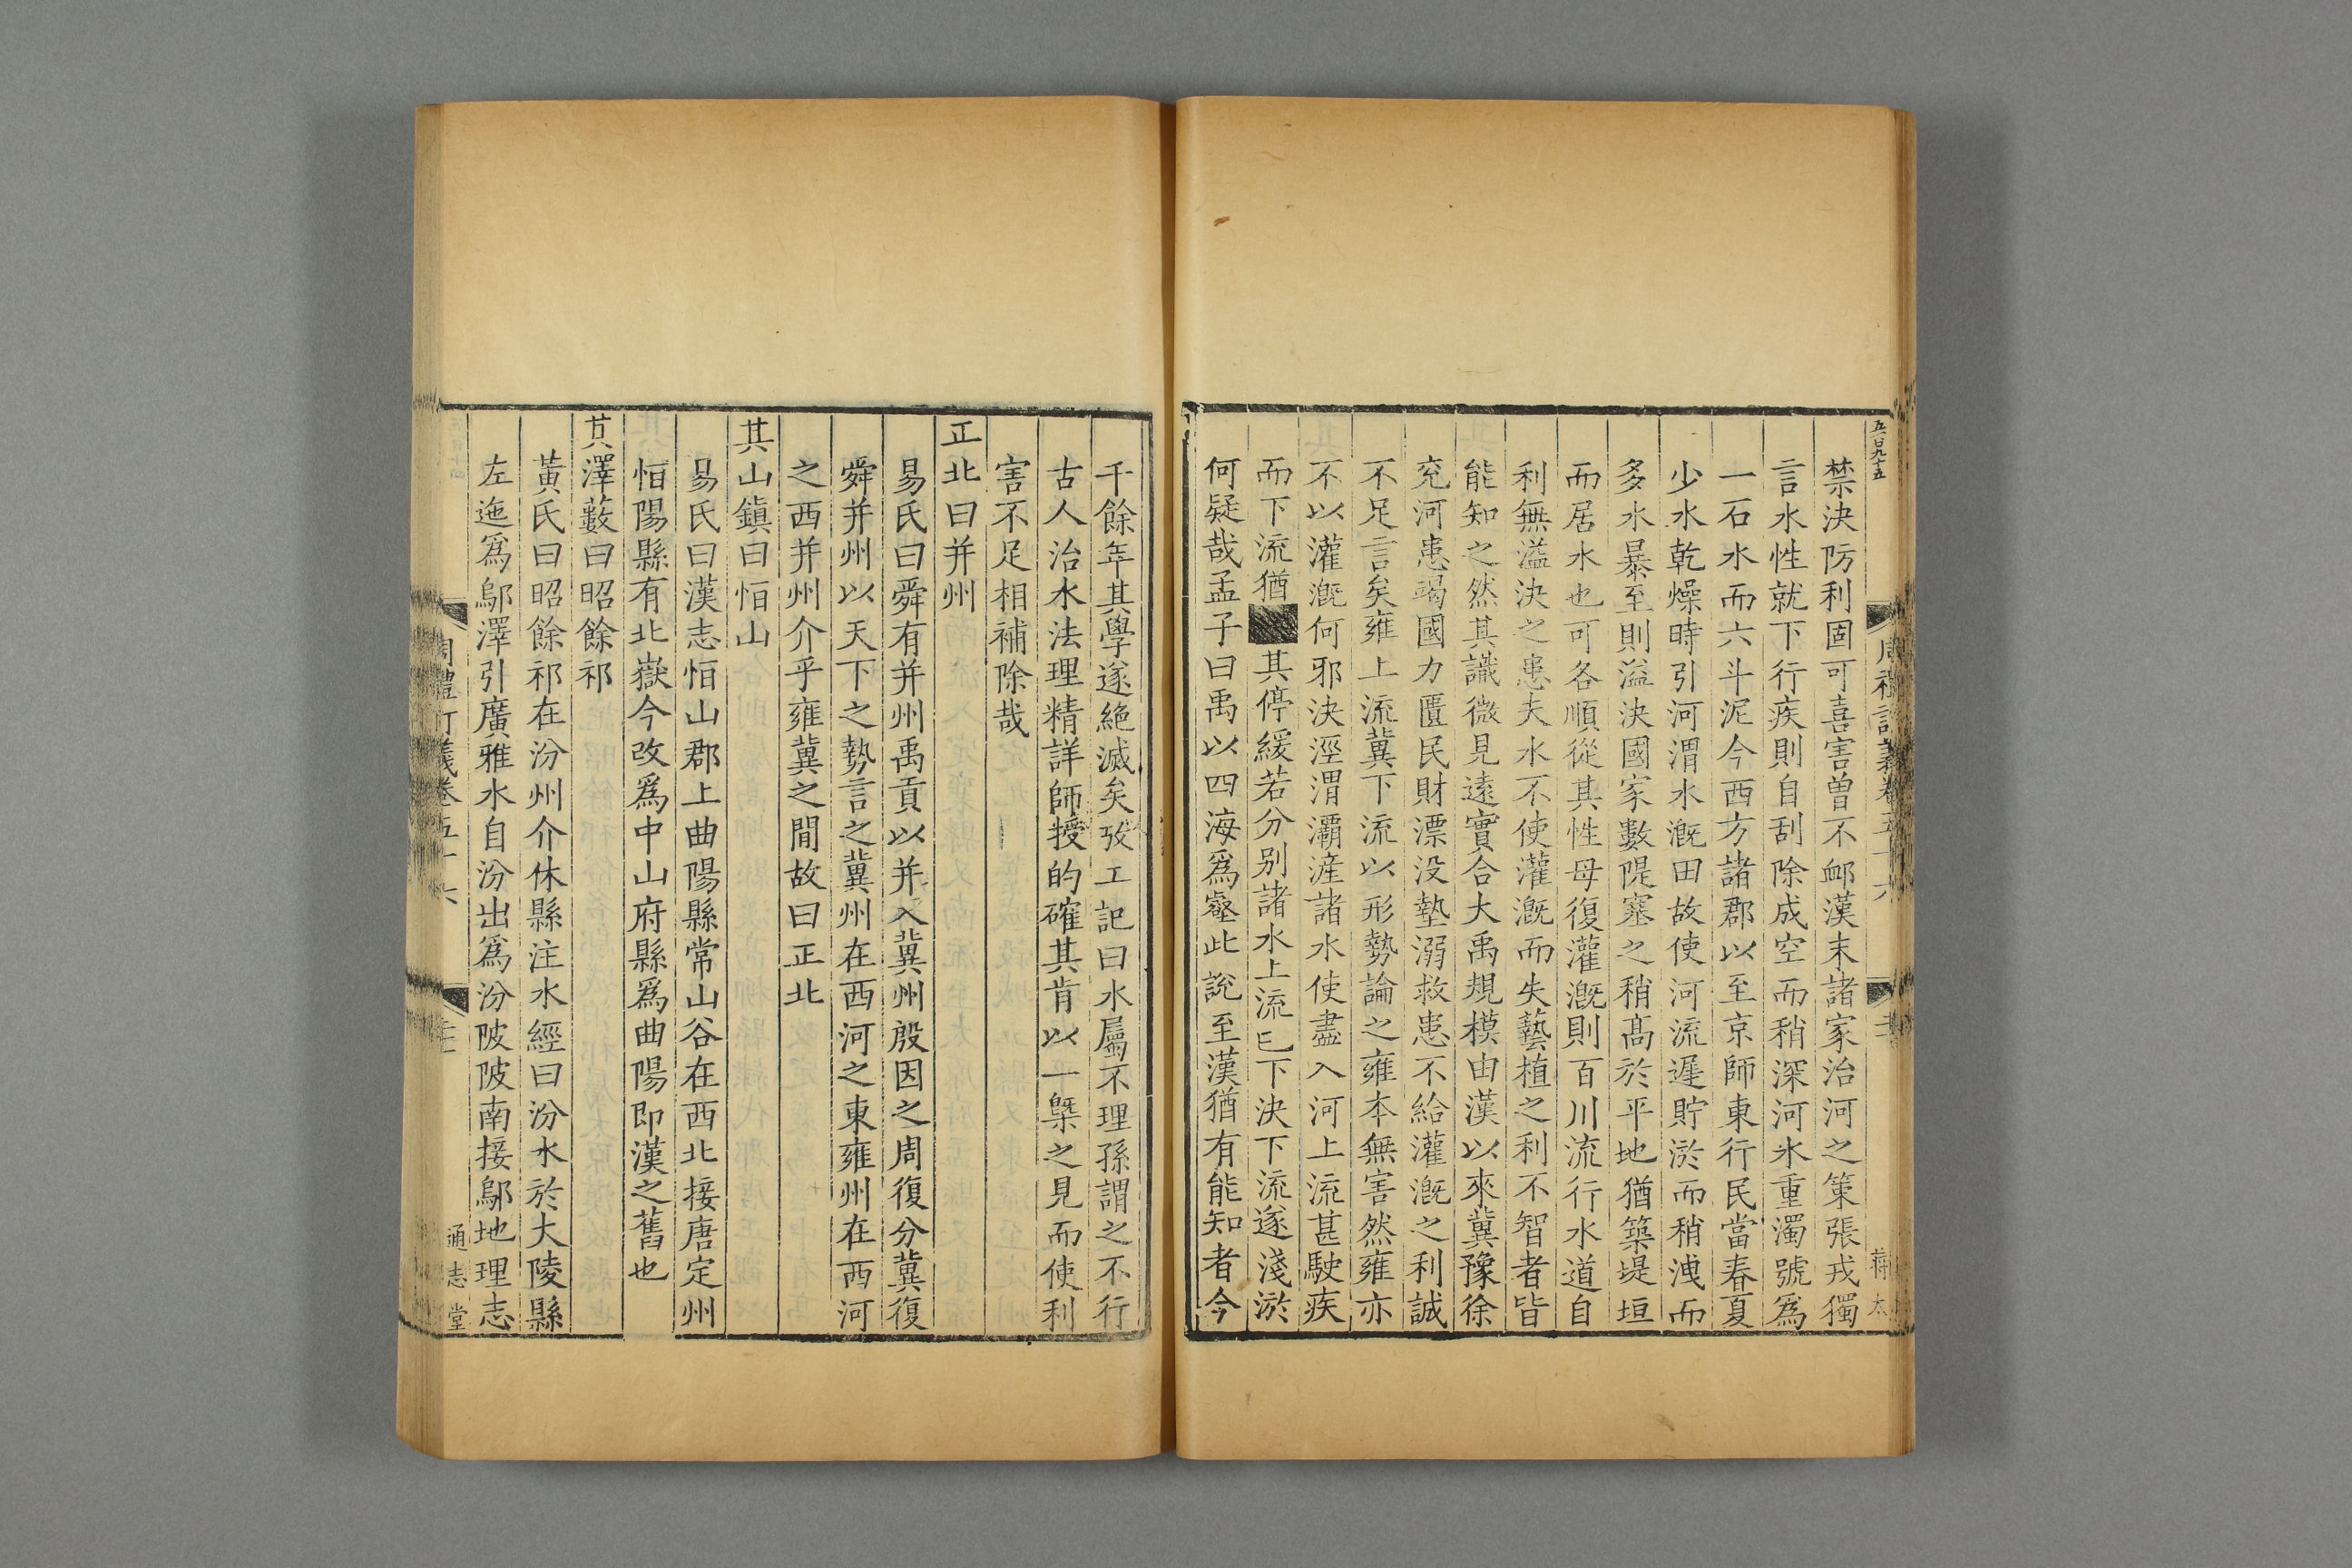 五百九十五
禁決防利固可喜害曽不䘏漢末諸家治河之策張戎獨
言水性就下行疾則自刮除成空而稍深河水重濁號爲
一石水而六斗泥今西方諸郡以至京師東行民當春夏
少水乾燥時引河渭水漑田故使河流遲貯淤而稍洩而
多水暴至則溢決國家數隄塞之稍髙於平地猶築堤垣
而居水也可各順從其性毋復灌漑則百川流行水道自
利無溢決之患夫水不使灌漑而失藝植之利不智者皆
能知之然其識微見遠實合大禹規模由漢以來冀豫徐
兖河患竭國力匱民財漂没墊溺救患不給灌漑之利誠
不足言矣雍上流冀下流以形勢論之雍本無害然雍亦
不以灌漑何邪決涇渭灞滻諸水使盡入河上流甚駛疾
而下流猶其停緩若分别諸水上流巳下決下流遂淺淤
何疑哉孟子曰禹以四海爲壑此說至漢猶有能知者今
千餘年其學遂絶滅矣攷工記曰水屬不理孫謂之不行
古人治水法理精詳師授的確其肯以一槩之見而使利
害不足相補除哉
正北曰并州
易氏曰舜有并州禹貢以并入冀州殷因之周復分冀復
舜并州以天下之勢言之冀州在西河之東雍州在西河
之西并州介乎雍冀之間故曰正北
其山鎮曰恒山
易氏曰漢志恒山郡上曲陽縣常山谷在西北接唐定州
恒陽縣有北嶽今改爲中山府縣爲曲陽即漢之舊也
其澤藪曰昭餘祁
黃氏曰昭餘祁在汾州介休縣注水經曰汾水於大陵縣
左迤爲鄔澤引廣雅水自汾出爲汾陂陂南接鄔地理志
周禮訂義卷五十六
通志堂